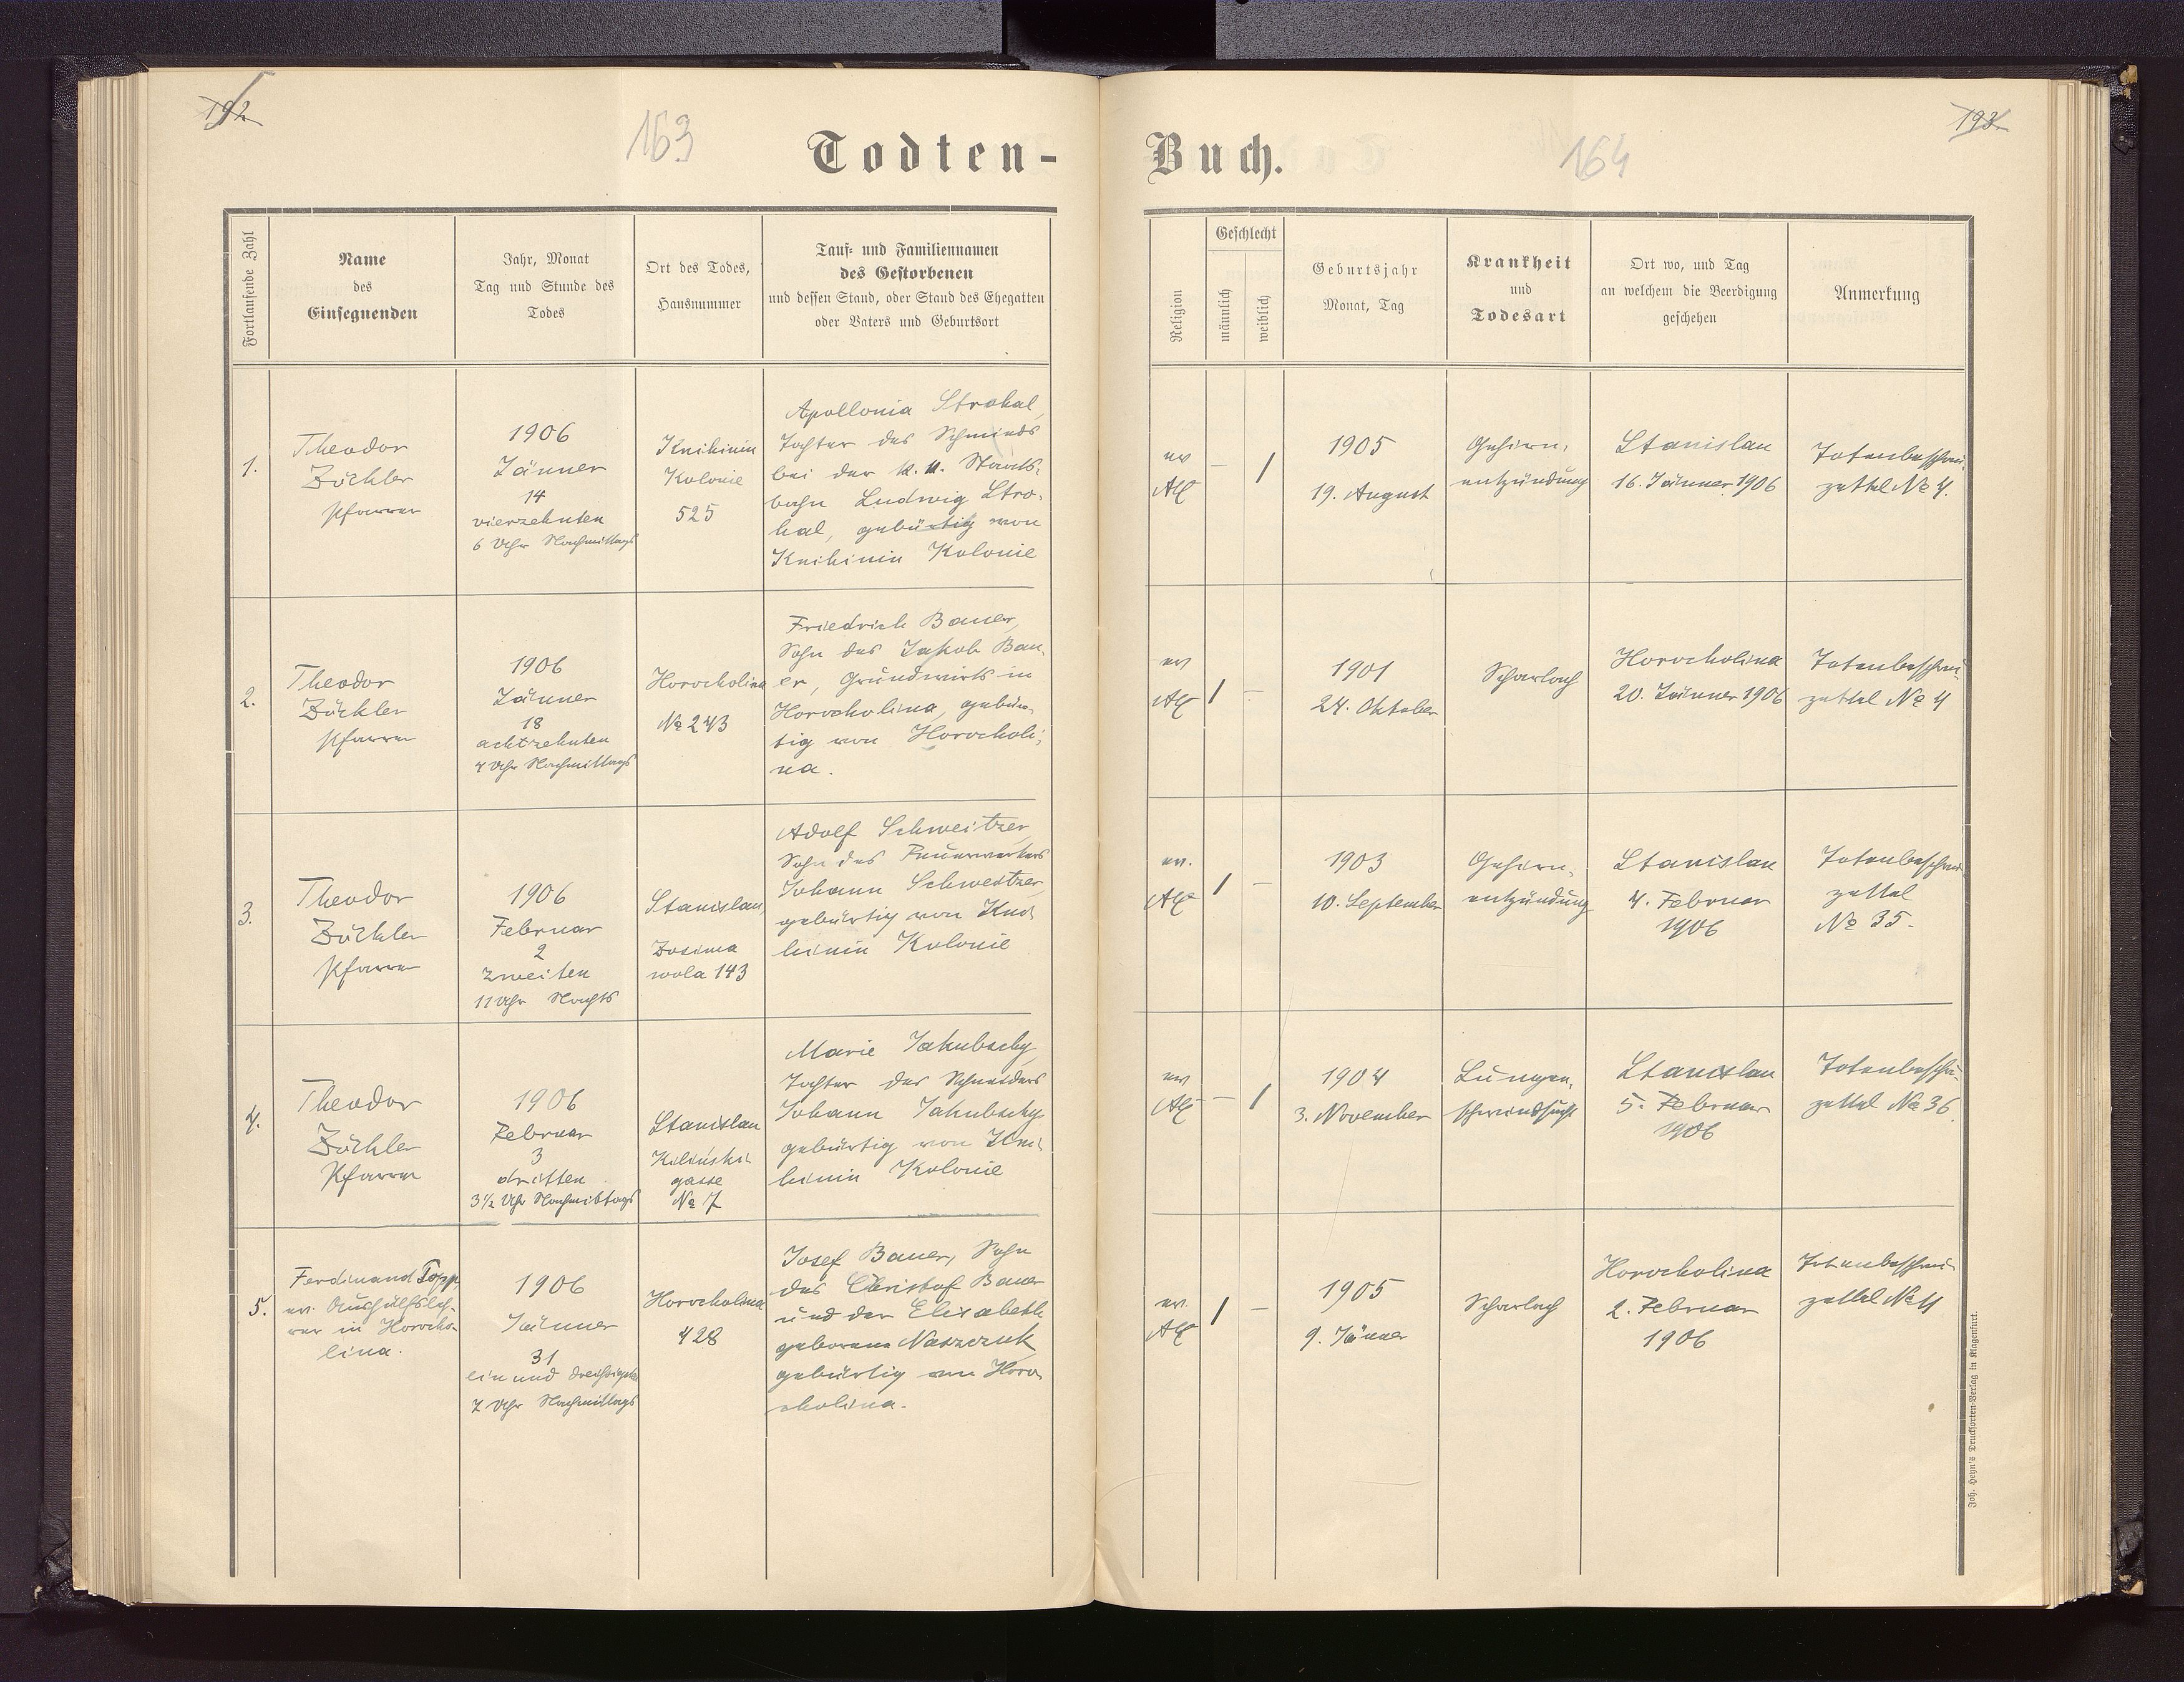 192
163
Todten-
Fortlaufende Zahl
Name
des
Einsegnenden
Jahr, Monat
Tag und Stunde des
Todes
Ort des Todes,
Hausnummer
Tauf- und Familiennamen
des Gestorbenen
und dessen Stand, oder Stand des Ehegatten
oder Vaters und Geburtsort
1.
Theodor
Zöckler
Pfarrer
1906
Jänner
14
vierzehnten
6 Uhr Nachmittags
Knihinin
Kolonie
525
Apollonia Strohal,
Tochter des Schmieds
bei der k. k. Staats-
bahn Ludwig Stro-
hal, gebürtig von
Knihinin Kolonie
2.
Theodor
Zöckler
Pfarrer
1906
Jänner
18
achtzehnten
4 Uhr Nachmittags
Horocholina
№ 243
Friedrich Bauer,
Sohn des Jakob Bau-
er, Grundwirts in
Horocholina, gebür-
tig von Horocholi-
na.
3.
Theodor
Zöckler
Pfarrer
1906
Februar
2
zweiten
11 Uhr Nachts
Stanislau,
Zosina
wola 143
Adolf Schweitzer,
Sohn des Feuerwerkers
Johann Schweitzer,
gebürtig von Kni-
hinin Kolonie
4.
Theodor
Zöckler
Pfarrer
1906
Februar
3
dritten
3½ Uhr Nachmittags
Stanislau
Kilinski-
gasse
№ 7
Marie Jakubschy,
Tochter des Schneiders
Johann Jakubschy
gebürtig von Kni-
hinin Kolonie
5.
Ferdinand Topp,
ev. Aushülfsleh-
rer in Horocho-
lina.
1906
Jänner
31
ein und dreißigsten
7 Uhr Nachmittags
Horocholina
428
Josef Bauer, Sohn
des Christof Bauer
und der Elisabeth
geborene Naszczuk
gebürtig von Horo-
cholina.
Buch.
164
193
Religion
Geschlecht
männlich
weiblich
Geburtsjahr
Monat, Tag
Krankheit
und
Todesart
Ort wo, und Tag
an welchem die Beerdigung
geschehen
Anmerkung
ev
AC
—
1
1905
19. August
Gehirn-
entzündung
Stanislau
16. Jänner 1906
Totenbeschau-
zettel № 4.
ev
AC
1
—
1901
24. Oktober
Scharlach
Horocholina
20. Jänner 1906
Totenbeschau-
zettel № 4
ev.
AC
1
—
1903
10. September
Gehirn-
entzündung
Stanislau
4. Februar
1906
Totenbeschau
zettel
№ 35.
ev
AC
—
1
1904
3. November
Lungen-
schwindsucht
Stanislau
5. Februar
1906
Totenbeschau-
zettel № 36
ev.
AC
1
—
1905
9. Jänner
Scharlach
Horocholina
2. Februar
1906
Totenbeschau-
zettel № 11
Joh. Heyn's Drucksorten-Verlag in Klagenfurt.